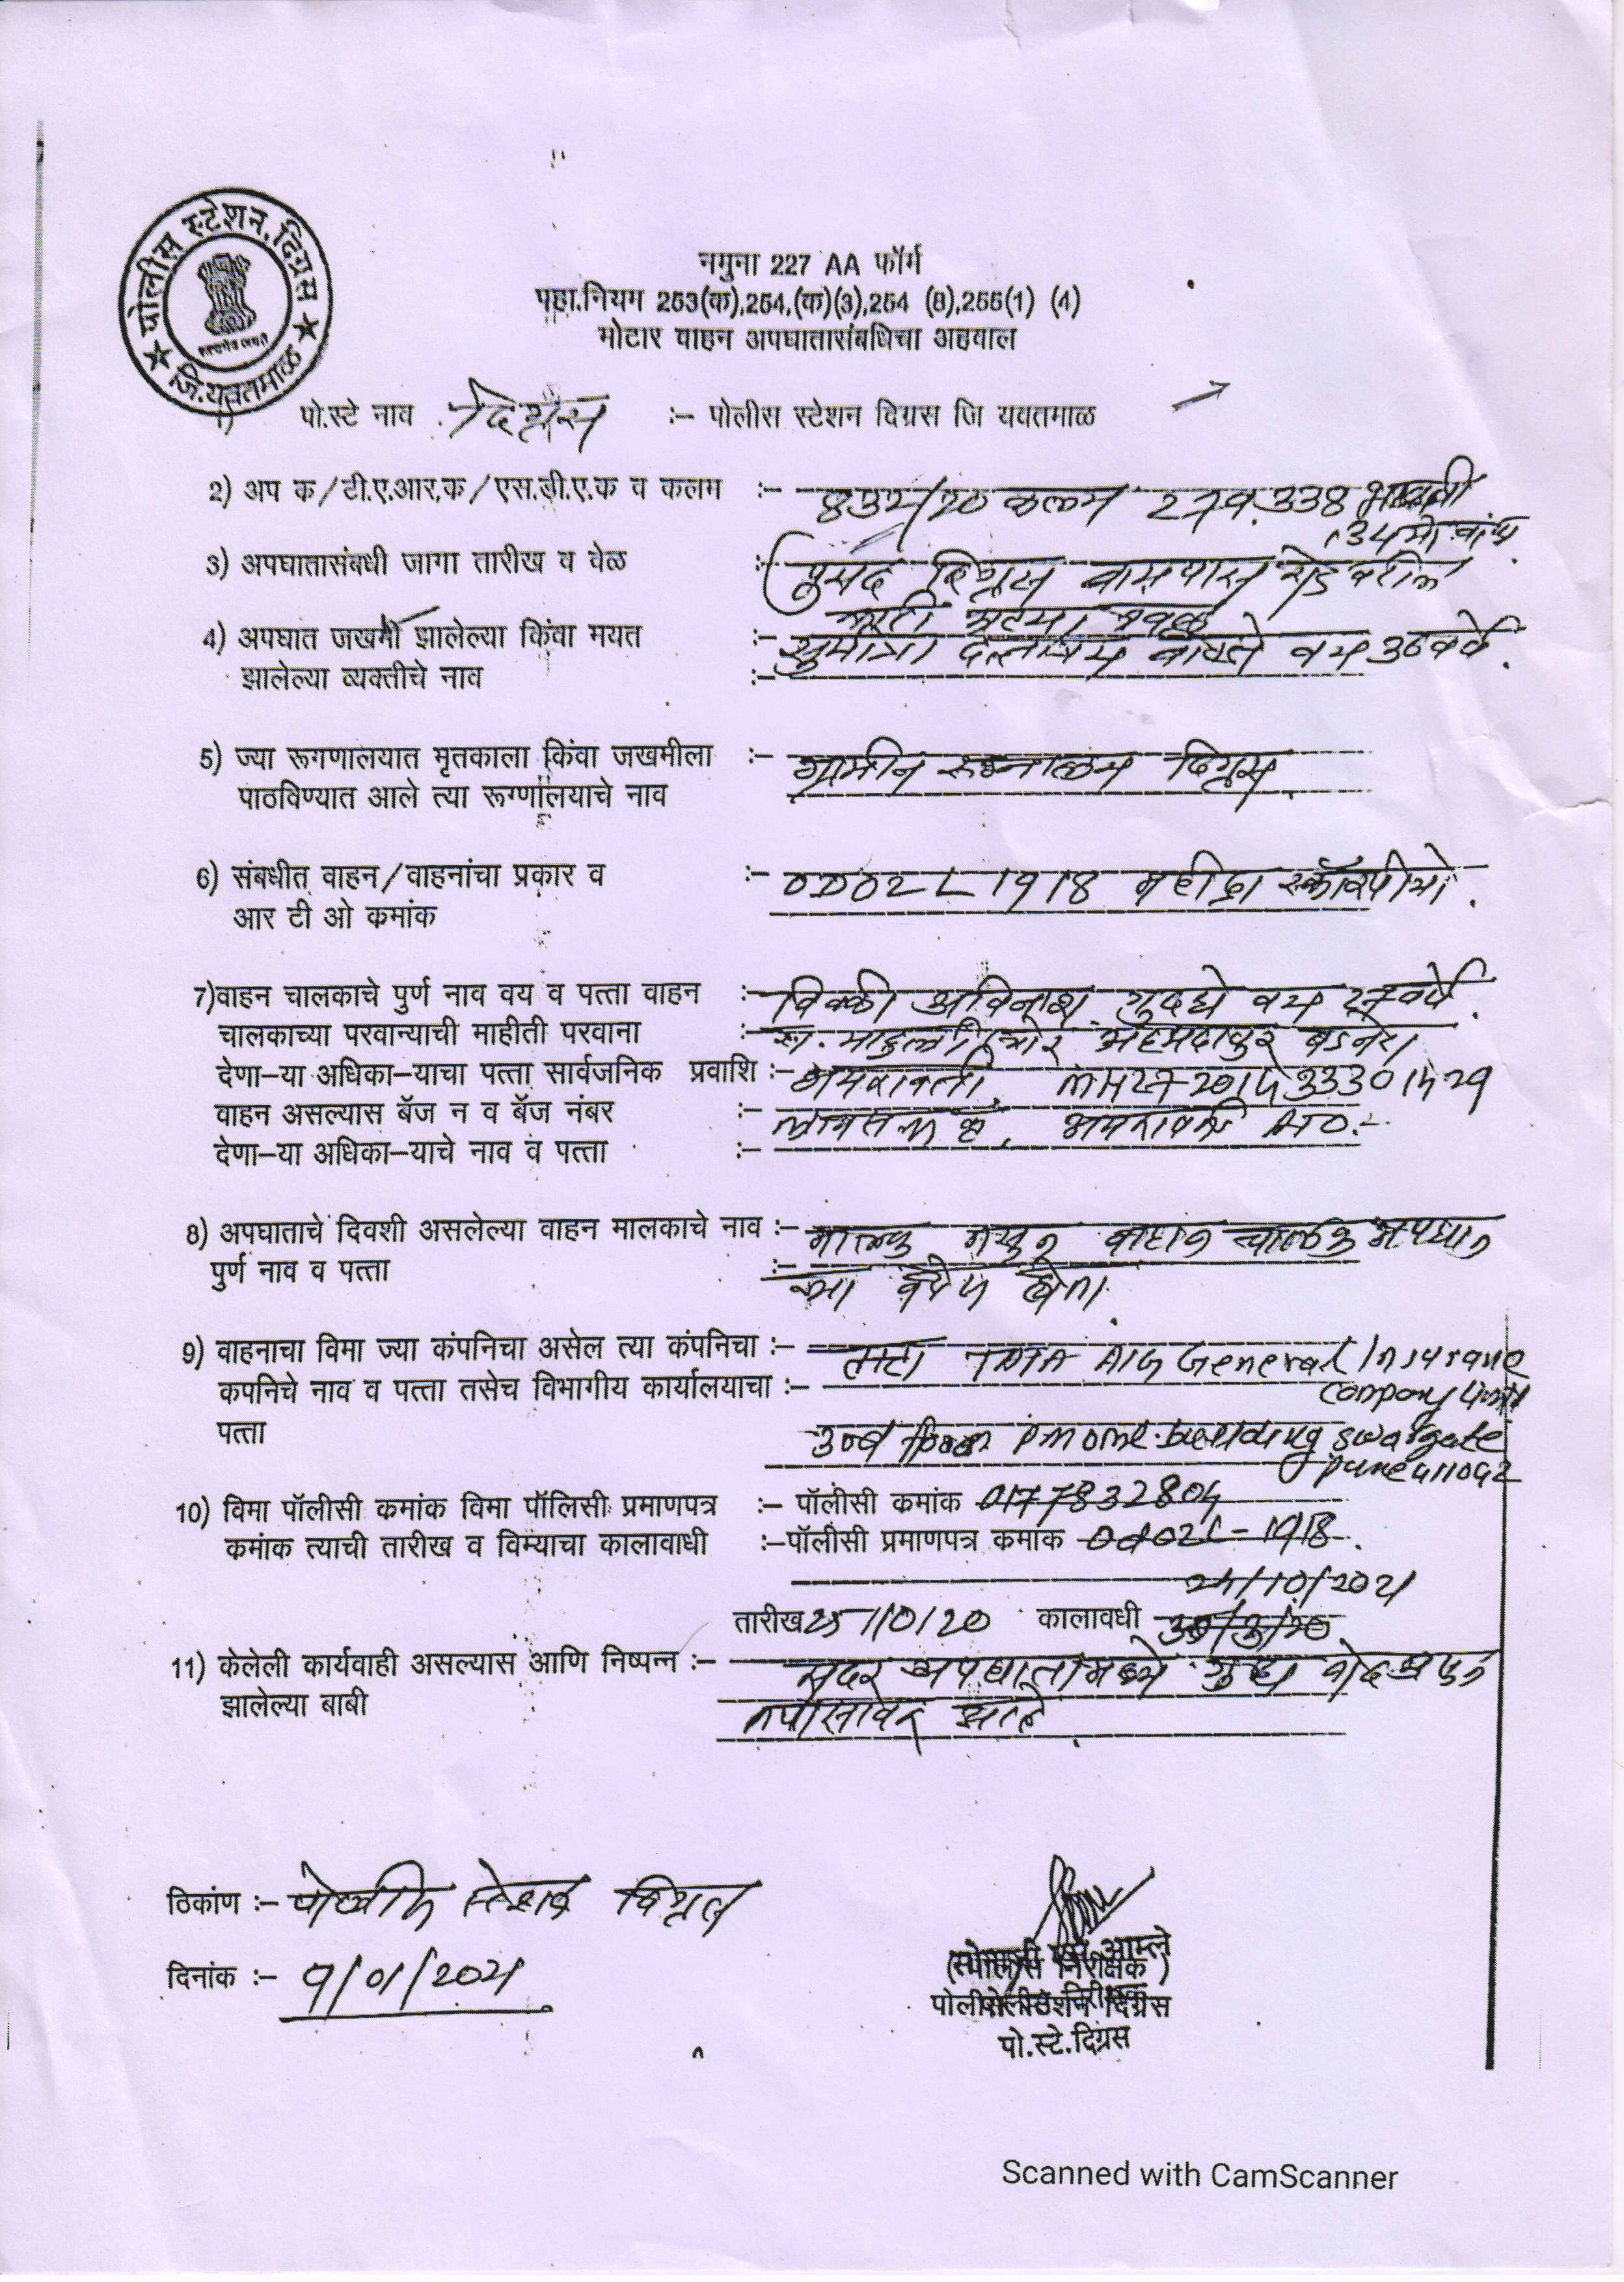 पोलीस स्टेशन, दिग्रस
जि.यवतमाळ
नमुना 227 AA फॉर्म
महा.नियम 253(क),254,(क)(3),254 (8),255(1) (4)
मोटार वाहन अपघातासंबधिचा अहवाल
1) पो.स्टे नाव दिग्रस :– पोलीस स्टेशन दिग्रस जि यवतमाळ
2) अप क/टी.ए.आर.क/एस.डी.ए.क व कलम :– 832/20 कलम 279.338 भादवी
134 मो.वा.का
3) अपघातासंबधी जागा तारीख व वेळ :– पुसद दिग्रस बायपास रोड वरील
4) अपघात जखमी झालेल्या किंवा मयत :– सुमित्रा दत्तात्रय वय 36 वर्षे.
झालेल्या व्यक्तीचे नाव :–
5) ज्या रूगणालयात मृतकाला किंवा जखमीला :– ग्रामीन रूग्नालय दिग्रस.
पाठविण्यात आले त्या रूग्णांलयाचे नाव
6) संबधीत वाहन/वाहनांचा प्रकार व :– OD02L1918 महीद्रा स्कॉरपीओ.
आर टी ओ कमांक
7)वाहन चालकाचे पुर्ण नाव वय व पत्ता वाहन :– विक्की अविनाश गुदघे वय 27 वर्षे.
चालकाच्या परवान्याची माहीती परवाना :– रा. बडनेरा
देणा–या अधिका–याचा पत्ता सार्वजनिक प्रवाशि :– अमरावती.
वाहन असल्यास बॅज न व बॅज नंबर :– लायसन्स अमरावती RTO.
देणा–या अधिका–याचे नाव व पत्ता :–
8) अपघाताचे दिवशी असलेल्या वाहन मालकाचे नाव :– वाहन चालक अपघात
पुर्ण नाव व पत्ता :–
9) वाहनाचा विमा ज्या कंपनिचा असेल त्या कंपनिचा :– टाटा TATA AIG General Insurance
कपनिचे नाव व पत्ता तसेच विभागीय कार्यालयाचा :– Company Limit
पत्ता 3rd floor building swargate
pune 411042
10) विमा पॉलीसी कमांक विमा पॉलिसी प्रमाणपत्र :– पॉलीसी कमांक 0177832804
कमांक त्याची तारीख व विम्याचा कालावाधी :–पॉलीसी प्रमाणपत्र कमांक Od02L–1918.
24/10/2021
तारीख 25/10/20 कालावधी
11) केलेली कार्यवाही असल्यास आणि निष्पन्न :– सदर अपघातामध्ये गुन्हा नोंद असुन
झालेल्या बाबी तपासावर आहे.
ठिकांण :– पोलीस स्टेशन दिग्रस
दिनांक :– 9/01/2021
(पोलिस निरीक्षक)
पोलीस स्टेशन दिग्रस
पो.स्टे.दिग्रस
Scanned with CamScanner